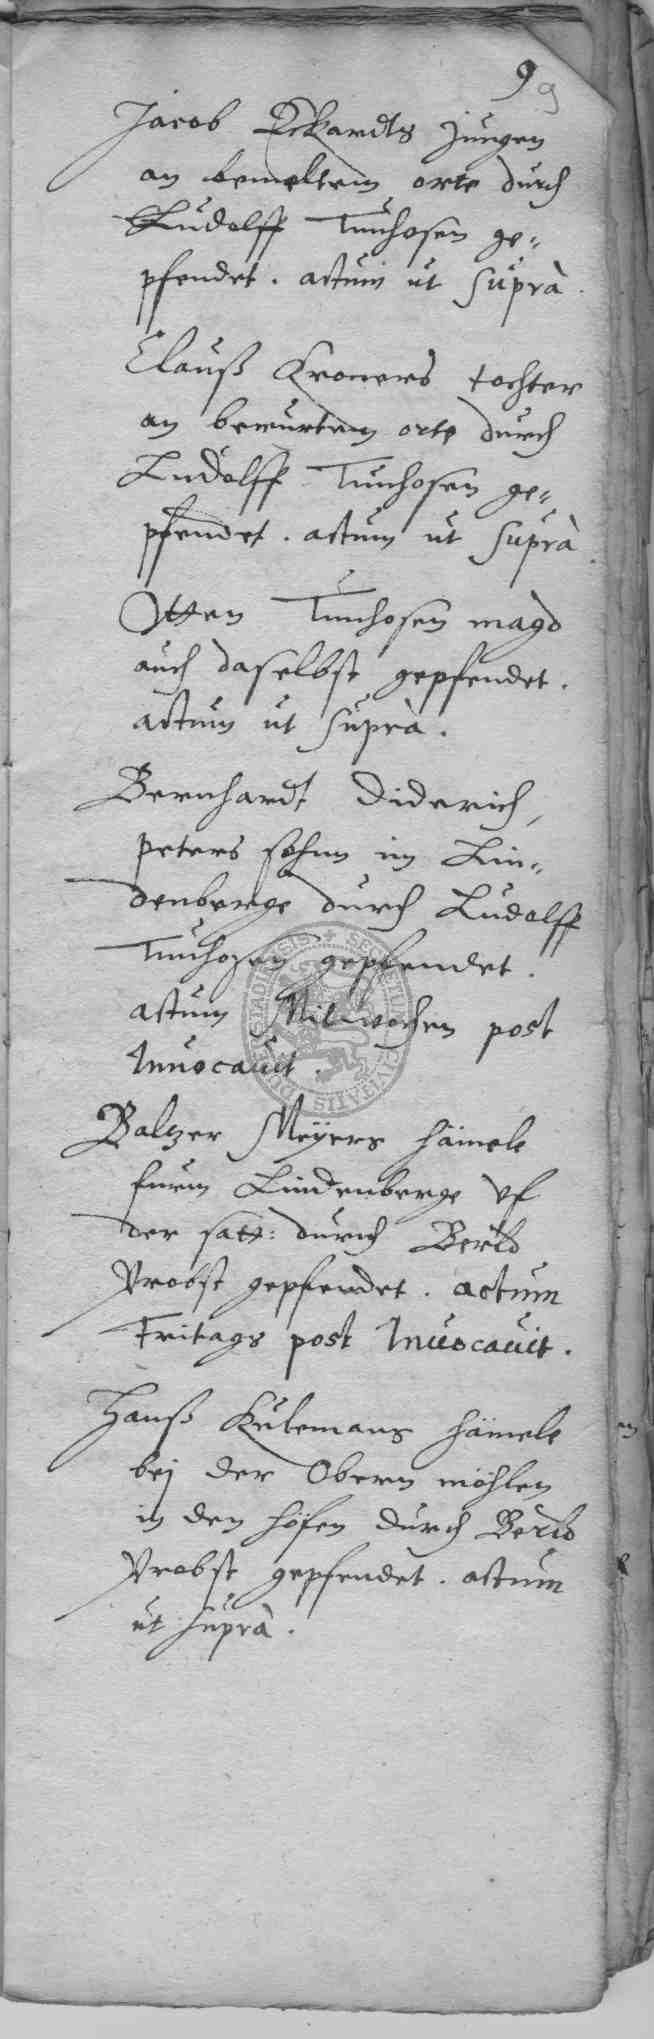 9 9
Jacob Eckardts jungen
an bemeltem orte durch
Ludolff Tunhosen ge-
pfendet. actum ut suprà.
Clauß Kroners tochter
an berurtem orte durch
Ludolff Tunhosen ge-
pfendet. actum ut suprà.
Otten Tunhosen magd
auch daselbst gepfendet.
actum ut suprà.
Bernhardt Diderich,
peters sohnn im Lin-
denberge durch Ludolff
Tunhosen gepfendet.
actum Mitwochen post
Inuocauit.
Baltzer Meÿers hämele
furm Lindenberge vf
der satt: durch Berld
Probst gepfendet. actum
Fritags post Inuocauit.
Hanß Kulemans hämele
bej der Obern möhlen
in den höfen durch Berld
Probst gepfendet. actum
ut suprà.